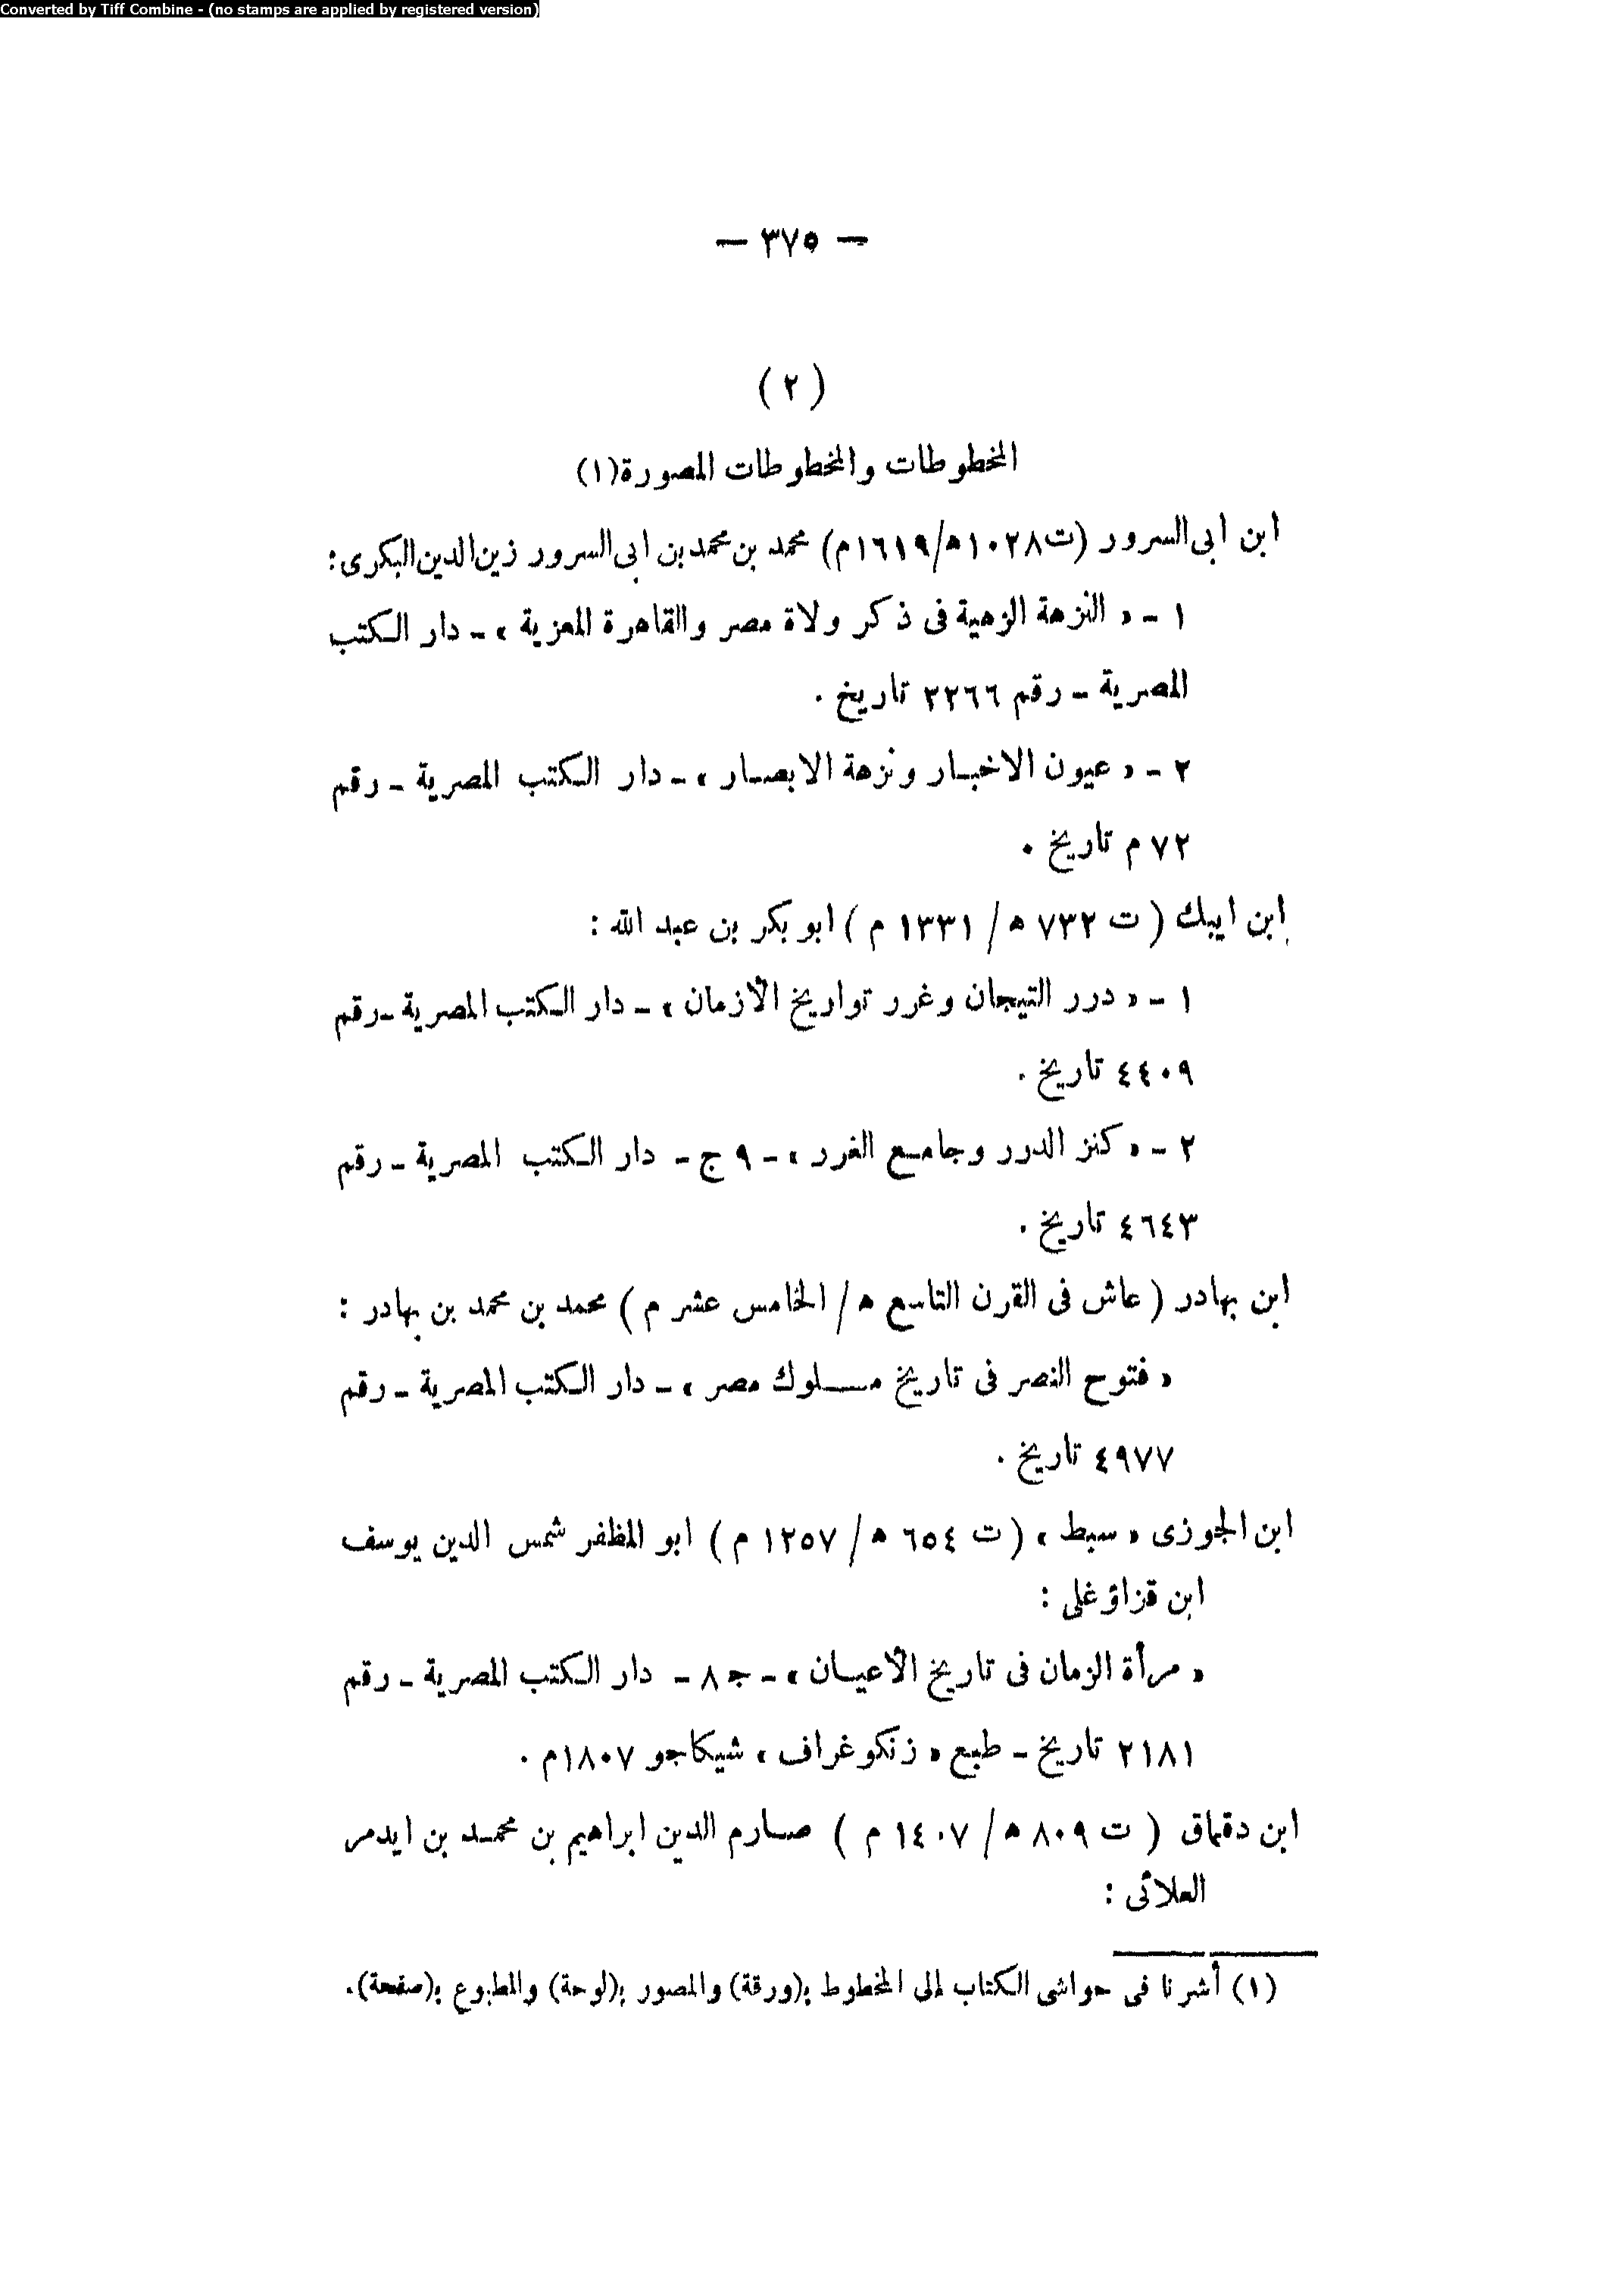 Converted by Tiff Combine - (no stamps are applied by registered version)
— ٣٧٥ —
( ٢ )
المخطوطات والمخطوطات المصورة(١)
ابن ابى السرور (ت١٠٢٨ه/١٦١٩م) محمد بن محمد بن ابى السرور زين الدين البكرى:
١ - « النزهة الزهية فى ذكر ولاة مصر والقاهرة المعزية » - دار الكتب
المصرية - رقم ٢٢٦٦ تاريخ .
٢ - « عيون الاخبار ونزهة الابصار » - دار الكتب المصرية - رقم
٧٢ م تاريخ .
ابن ايبك ( ت ٧٣٢ ه / ١٣٣١ م ) ابو بكر بن عبد الله :
١ - « درر التيجان وغرر تواريخ الأزمان » - دار الكتب المصرية - رقم
٤٤٠٩ تاريخ .
٢ - « كنز الدرر وجامع الغرر » - ٩ ج - دار الكتب المصرية - رقم
٤٦٤٣ تاريخ .
ابن بهادر ( عاش فى القرن التاسع ه / الخامس عشر م ) محمد بن محمد بن بهادر :
« فتوح النصر فى تاريخ مسلوك مصر » - دار الكتب المصرية - رقم
٤٩٧٧ تاريخ .
ابن الجوزى « سبط » ( ت ٦٥٤ ه / ١٢٥٧ م ) ابو المظفر شمس الدين يوسف
ابن قزاؤغلى :
« مرأة الزمان فى تاريخ الأعيان » - ج ٨ - دار الكتب المصرية - رقم
٢١٨١ تاريخ - طبع « زنكوغراف » شيكاجو ١٨٠٧م .
ابن دقماق ( ت ٨٠٩ ه / ١٤٠٧ م ) صارم الدين ابراهيم بن محمد بن ايدمر
العلائى :
(١) أشرنا فى حواشى الكتاب إلى المخطوط بـ(ورقة) والمصور بـ(لوحة) والمطبوع بـ(صفحة).